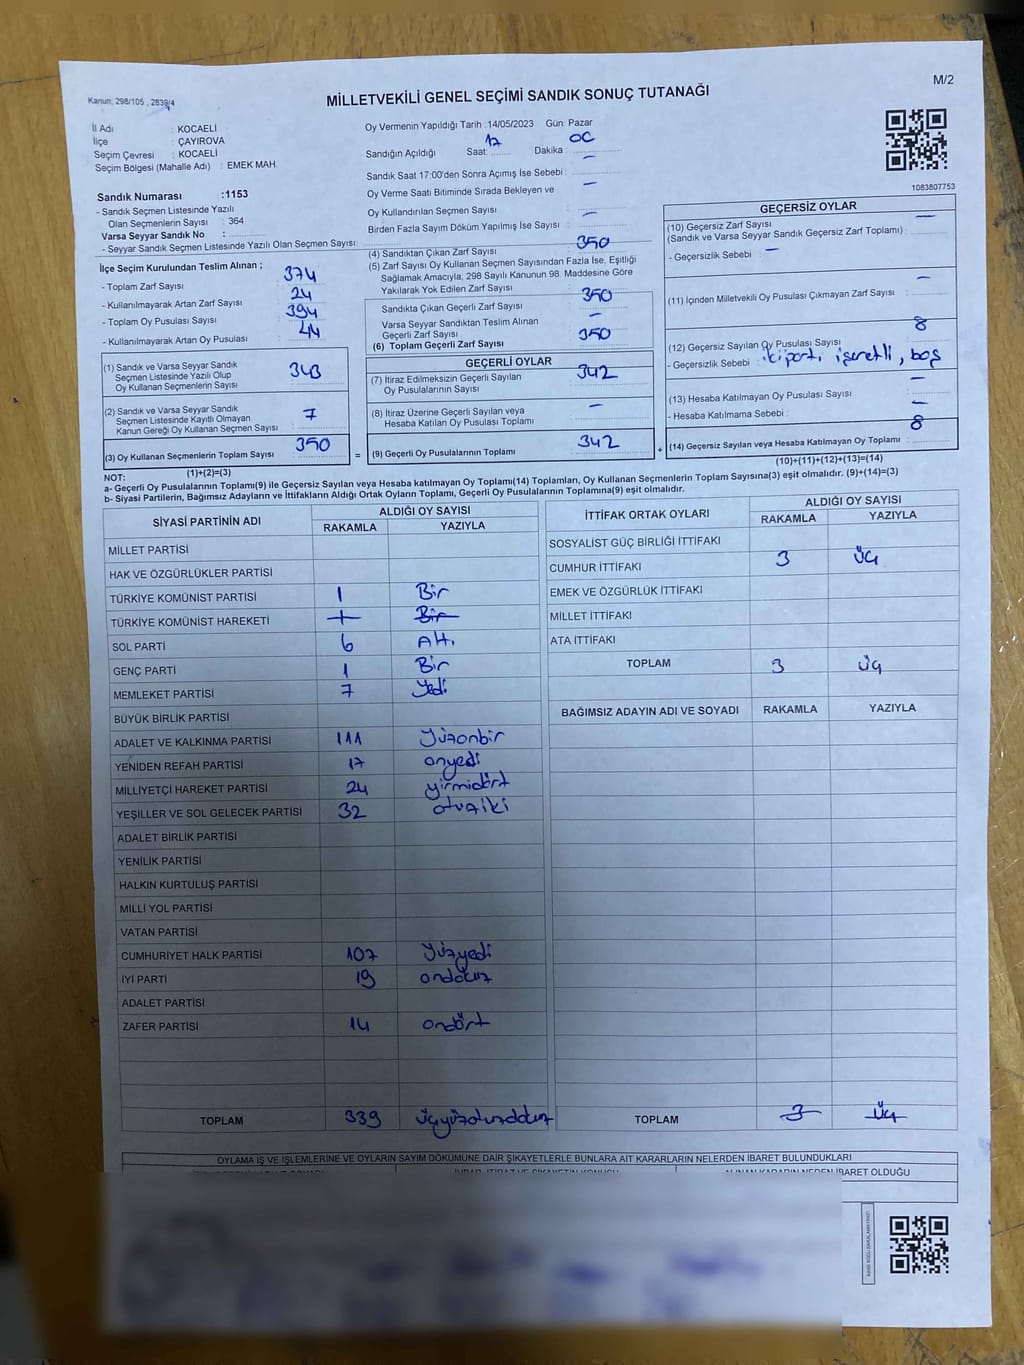 Kanun; 298/105 , 2839/4
MİLLETVEKİLİ GENEL SEÇİMİ SANDIK SONUÇ TUTANAĞI
M/2
İl Adı : KOCAELİ
İlçe : ÇAYIROVA
Seçim Çevresi : KOCAELİ
Seçim Bölgesi (Mahalle Adı) : EMEK MAH.
Oy Vermenin Yapıldığı Tarih :14/05/2023 Gün: Pazar
Sandığın Açıldığı Saat: 17 Dakika : 00
Sandık Saat 17:00'den Sonra Açımış İse Sebebi : –
Oy Verme Saati Bitiminde Sırada Bekleyen ve
Oy Kullandırılan Seçmen Sayısı –
Birden Fazla Sayım Döküm Yapılmış İse Sayısı : –
1083807753
Sandık Numarası :1153
- Sandık Seçmen Listesinde Yazılı
Olan Seçmenlerin Sayısı : 364
Varsa Seyyar Sandık No :
- Seyyar Sandık Seçmen Listesinde Yazılı Olan Seçmen Sayısı:
İlçe Seçim Kurulundan Teslim Alınan ;
- Toplam Zarf Sayısı 374
- Kullanılmayarak Artan Zarf Sayısı 24
- Toplam Oy Pusulası Sayısı 394
- Kullanılmayarak Artan Oy Pusulası 44
(1) Sandık ve Varsa Seyyar Sandık
Seçmen Listesinde Yazılı Olup
Oy Kullanan Seçmenlerin Sayısı 343
(2) Sandık ve Varsa Seyyar Sandık
Seçmen Listesinde Kayıtlı Olmayan
Kanun Gereği Oy Kullanan Seçmen Sayısı 7
(3) Oy Kullanan Seçmenlerin Toplam Sayısı 350
(1)+(2)=(3)
(4) Sandıktan Çıkan Zarf Sayısı 350
(5) Zarf Sayısı Oy Kullanan Seçmen Sayısından Fazla İse, Eşitliği
Sağlamak Amacıyla, 298 Sayılı Kanunun 98. Maddesine Göre
Yakılarak Yok Edilen Zarf Sayısı :
Sandıkta Çıkan Geçerli Zarf Sayısı 350
Varsa Seyyar Sandıktan Teslim Alınan
Geçerli Zarf Sayısı –
(6) Toplam Geçerli Zarf Sayısı 350
GEÇERLİ OYLAR
(7) İtiraz Edilmeksizin Geçerli Sayılan
Oy Pusulalarının Sayısı 342
(8) İtiraz Üzerine Geçerli Sayılan veya
Hesaba Katılan Oy Pusulası Toplamı –
= (9) Geçerli Oy Pusulalarının Toplamı 342 +
GEÇERSİZ OYLAR
(10) Geçersiz Zarf Sayısı –
(Sandık ve Varsa Seyyar Sandık Geçersiz Zarf Toplamı) :
- Geçersizlik Sebebi : –
(11) İçinden Milletvekili Oy Pusulası Çıkmayan Zarf Sayısı –
(12) Geçersiz Sayılan Oy Pusulası Sayısı 8
- Geçersizlik Sebebi : iki parti, işaretli, boş
(13) Hesaba Katılmayan Oy Pusulası Sayısı –
- Hesaba Katılmama Sebebi : –
(14) Geçersiz Sayılan veya Hesaba Katılmayan Oy Toplamı : 8
(10)+(11)+(12)+(13)=(14)
NOT:
a- Geçerli Oy Pusulalarının Toplamı(9) ile Geçersiz Sayılan veya Hesaba katılmayan Oy Toplamı(14) Toplamları, Oy Kullanan Seçmenlerin Toplam Sayısına(3) eşit olmalıdır. (9)+(14)=(3)
b- Siyasi Partilerin, Bağımsız Adayların ve İttifakların Aldığı Ortak Oyların Toplamı, Geçerli Oy Pusulalarının Toplamına(9) eşit olmalıdır.
SİYASİ PARTİNİN ADI ALDIĞI OY SAYISI
RAKAMLA YAZIYLA
MİLLET PARTİSİ
HAK VE ÖZGÜRLÜKLER PARTİSİ
TÜRKİYE KOMÜNİST PARTİSİ 1 Bir
TÜRKİYE KOMÜNİST HAREKETİ 1 Bir
SOL PARTİ 6 Altı
GENÇ PARTİ 1 Bir
MEMLEKET PARTİSİ 7 Yedi
BÜYÜK BİRLİK PARTİSİ
ADALET VE KALKINMA PARTİSİ 111 Yüzonbir
YENİDEN REFAH PARTİSİ 17 onyedi
MİLLİYETÇİ HAREKET PARTİSİ 24 yirmidört
YEŞİLLER VE SOL GELECEK PARTİSİ 32 otuziki
ADALET BİRLİK PARTİSİ
YENİLİK PARTİSİ
HALKIN KURTULUŞ PARTİSİ
MİLLİ YOL PARTİSİ
VATAN PARTİSİ
CUMHURİYET HALK PARTİSİ 107 Yüzyedi
İYİ PARTİ 19 ondokuz
ADALET PARTİSİ
ZAFER PARTİSİ 14 ondört
TOPLAM 339 üçyüzotuzdokuz
İTTİFAK ORTAK OYLARI ALDIĞI OY SAYISI
RAKAMLA YAZIYLA
SOSYALİST GÜÇ BİRLİĞİ İTTİFAKI
CUMHUR İTTİFAKI 3 üç
EMEK VE ÖZGÜRLÜK İTTİFAKI
MİLLET İTTİFAKI
ATA İTTİFAKI
TOPLAM 3 üç
BAĞIMSIZ ADAYIN ADI VE SOYADI RAKAMLA YAZIYLA
TOPLAM 3 üç
OYLAMA İŞ VE İŞLEMLERİNE VE OYLARIN SAYIM DÖKÜMÜNE DAİR ŞİKAYETLERLE BUNLARA AİT KARARLARIN NELERDEN İBARET BULUNDUKLARI
İHBAR, İTİRAZ VE ŞİKAYETİN KONUSU ALINAN KARARIN NEDEN İBARET OLDUĞU